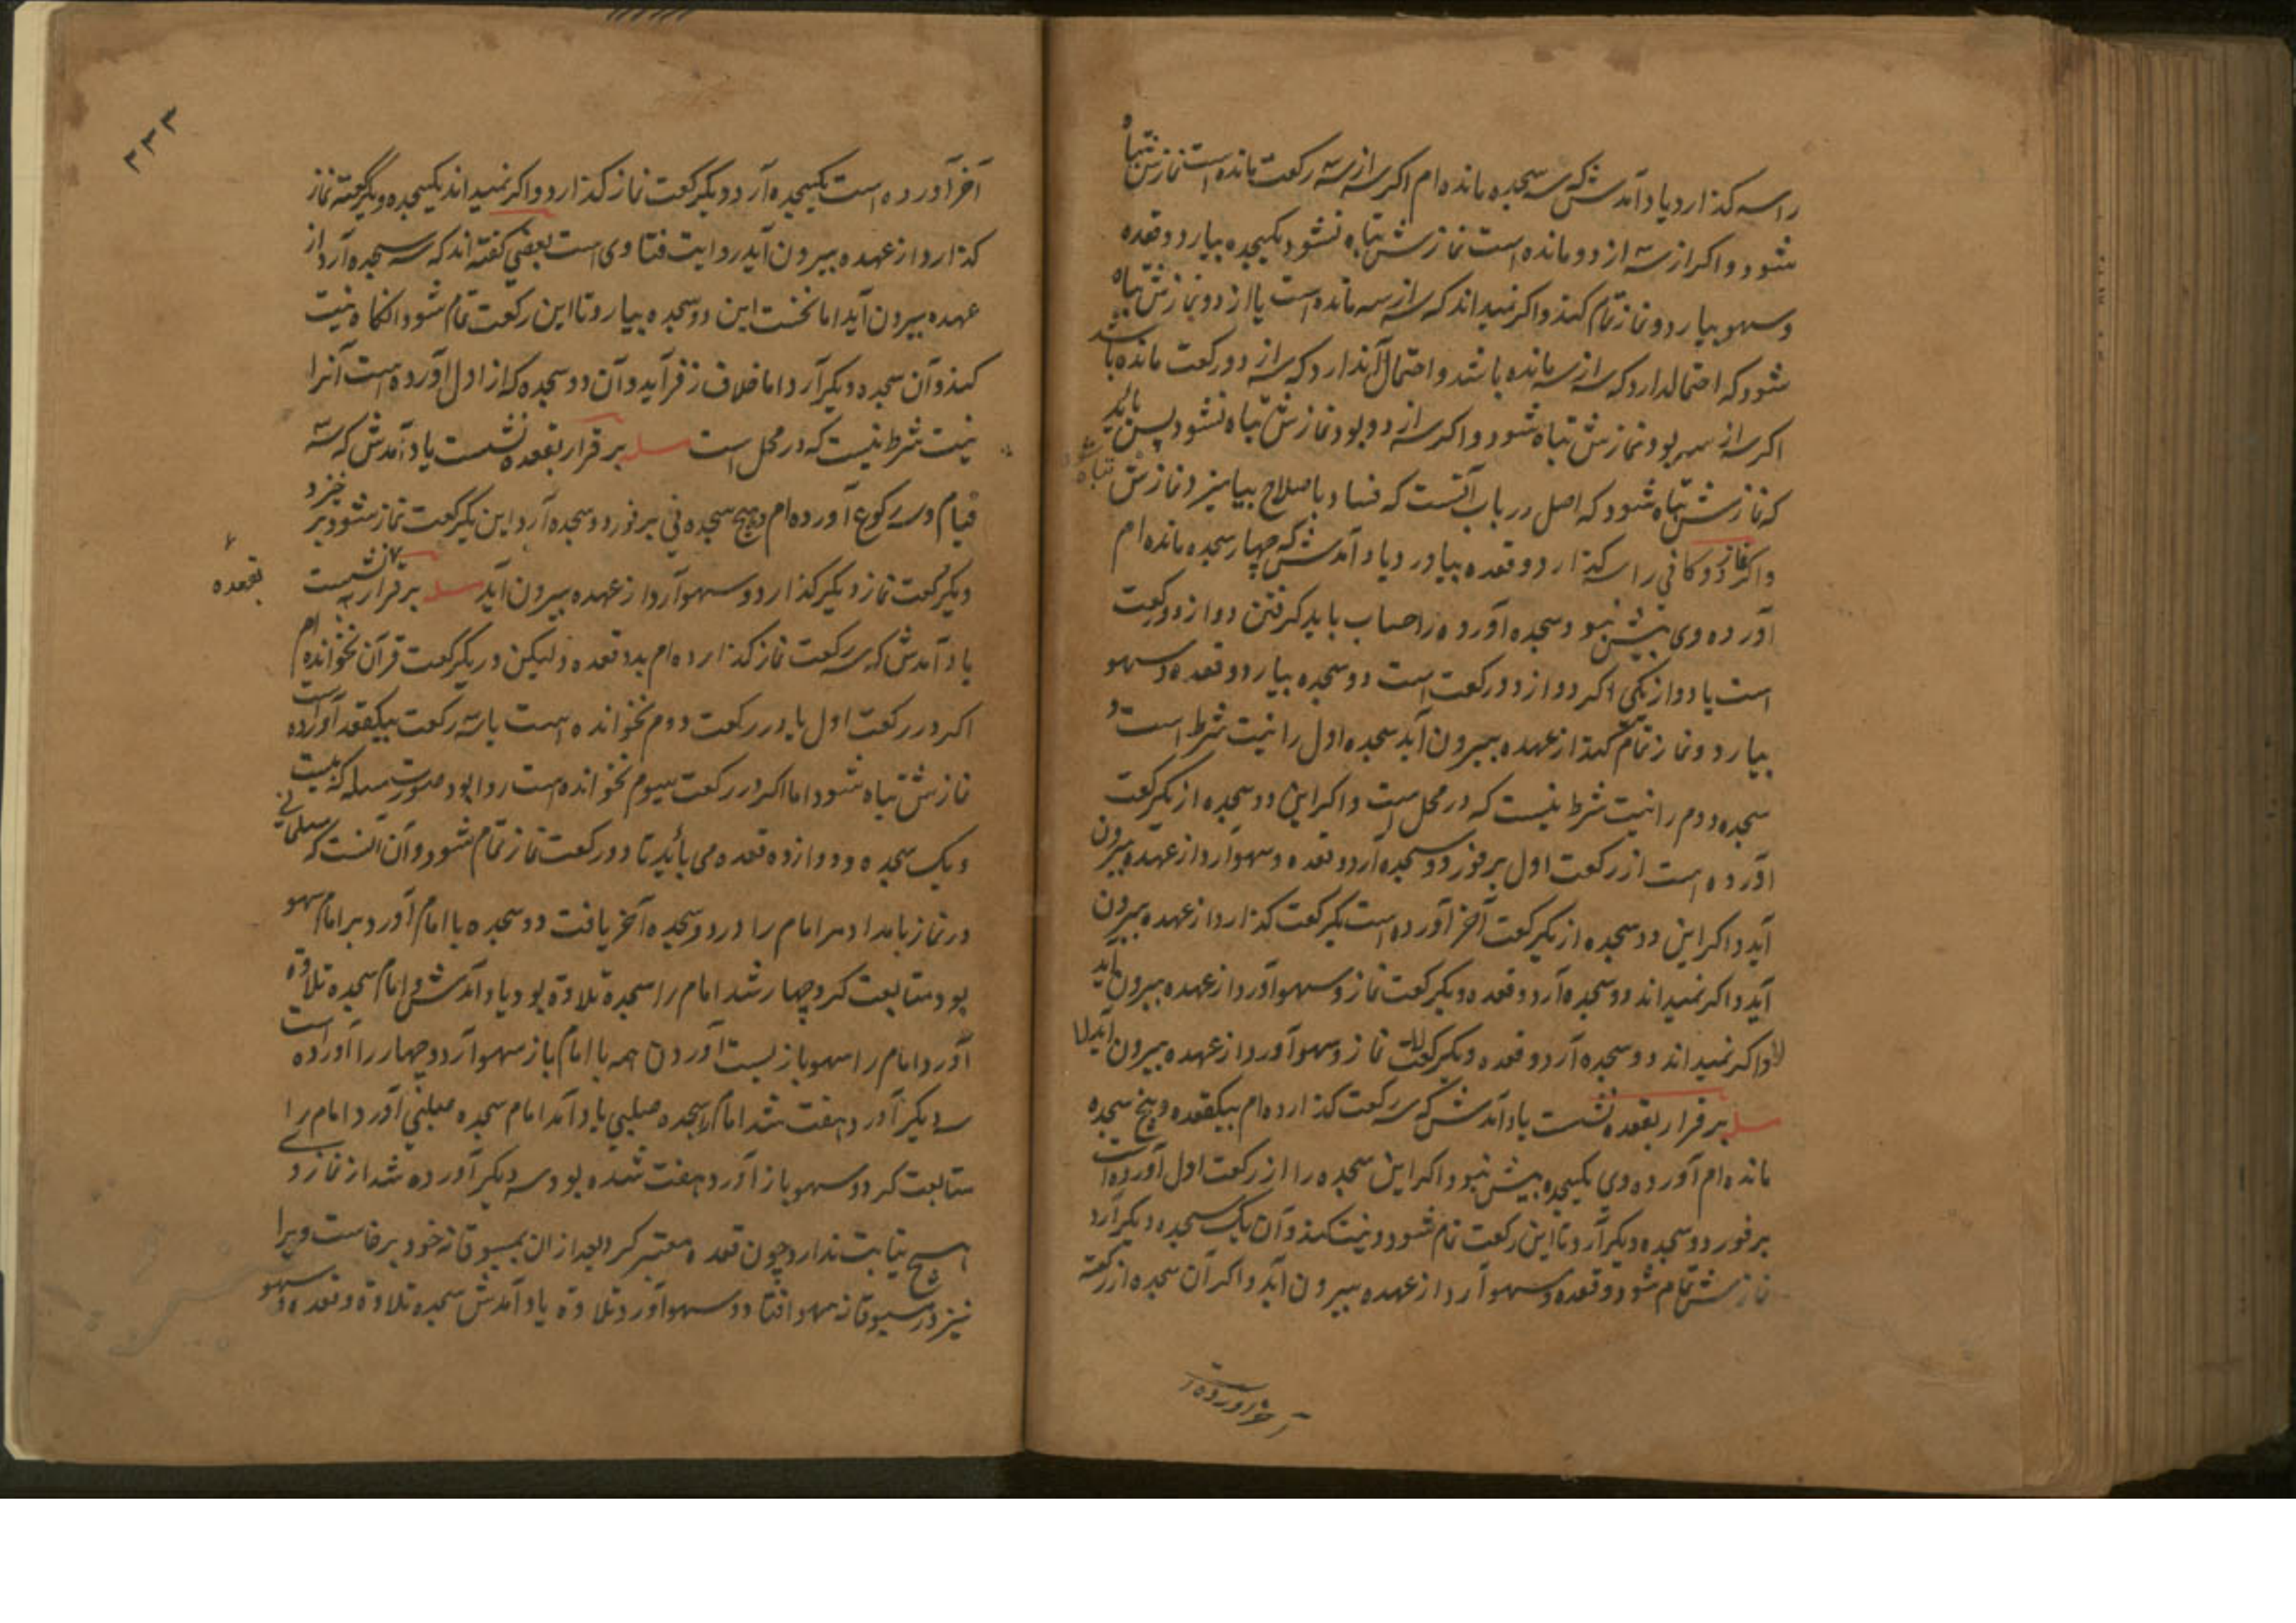 را سه گذارد یاد آمدش که سه سجده مانده ام اگر سه از سه رکعت مانده است نمازش تباه
شود و اگر از سه از دو مانده است نمازش تباه نشود یکسجده بیارد و قعده
و سهو بیارد و نماز تمام کند و اگر نمیداند که سه از سه مانده است یا از دو نمازش تباه
شود که احتمالدارد که سه از سه مانده باشد و احتمال آندارد که سه از دو رکعت مانده باشد
اگر سه از سه بود نمازش تباه شود و اگر سه از دو بود نمازش تباه نشود پس باید
که نمازش تباه شود که اصل در باب آنست که فساد با صلاح بیامیزد نمازش تباه شود
و اگر نماز دوگانی را سه گذارد و قعده بیاورد یاد آمدش که چهار سجده مانده ام
آورده وی بیش نبود سجده آورده را حساب باید گرفتن دو از دو رکعت
است یا دو از یکی اگر دو از دو رکعت است دو سجده بیارد و قعده و سهو
بیارد و نماز تمام کند از عهده بیرون آید سجده اول را نیت شرط است و
سجده دوم را نیت شرط نیست که در محل است و اگر این دو سجده از یکرکعت
آورده است از رکعت اول بر فور دو سجده آرد و قعده و سهو آرد از عهده بیرون
آید و اگر این دو سجده از یکرکعت آخر آورده است یکرکعت گذارد از عهده بیرون
آید و اگر نمیداند دو سجده آرد و قعده و یکرکعت نماز و سهو آورد از عهده بیرون آید
لا و اگر نمیداند دو سجده آرد و قعده و یکرکعت نماز و سهو آورد از عهده بیرون آید لا
مسله بر قرار بقعده نشست یاد آمدش که سه رکعت گذارده ام بیکقعده و پنج سجده
مانده ام آورده وی یکسجده بیش نبود اگر این سجده را از رکعت اول آورده است
بر فور دو سجده دیگر آرد تا این رکعت تمام شود و نیت کند و آن یک سجده دیگر آرد
نمازش تمام شود و قعده و سهو آرد از عهده بیرون آید و اگر آن سجده از رکعت
آخر آورده
۳۳۳
آخر آورده است یکسجده آرد و یکرکعت نماز گذارد و اگر نمیداند یکسجده و یکرکعته نماز
گذارد از عهده بیرون آید روایت فتاوی است بعضی گفته اند که سه سجده آرد از
عهده بیرون آید اما نخست این دو سجده بیارد تا این رکعت تمام شود آنگاه نیت
کند و آن سجده دیگر آرد اما خلاف زفر آید و آن دو سجده که از اول آورده است آنرا
نیت شرط نیست که در محل است مسله بر قرار بقعده نشست یاد آمدش که سه
قیام و سه رکوع آورده ام و هیچ سجده نی بر فور دو سجده آرد این یکرکعت نماز شود بر خیزد
و یکرکعت نماز دیگر گذارد و سهو آرد از عهده بیرون آید مسله بر قرار نشست
بقعده
یاد آمدش که سه رکعت نماز گذارده ام بدو قعده ولیکن در یکرکعت قرآن نخوانده ام
اگر در رکعت اول یا در رکعت دوم نخوانده است یا سه رکعت بیکقعده آورده است
نمازش تباه شود اما اگر در رکعت سیوم نخوانده است روا بود صورت مسله که بیست
و یک سجده و دوازده قعده می باید تا دو رکعت نماز تمام شود و آن آنست که مسلمانی
در نماز بامداد مر امام را در دو سجده آخر یافت دو سجده با امام آورد بر امام سهو
بود متابعت کرد چهار شد امام را سجده تلاوة بود یاد آمدش امام سجده تلاوة
آورد امام را سهو باز بست آوردن همه با امام باز سهو آرد و چهار را آورده است
سه دیگر آورد هفت شد امام را سجده صلبی یاد آمد امام سجده صلبی آورد امام را
متابعت کرد و سهو باز آورد هفت شده بود سه دیگر آورده شد از نماز وی
هیچ بنا بت ندارد چون قعده معتبر کرد بعد از آن بمسبوقانه خود برخاست ویرا
نیز در مسبوقانه سهو افتاد و سهو آورد تلاوة یاد آمدش سجده تلاوة و قعده و سهو